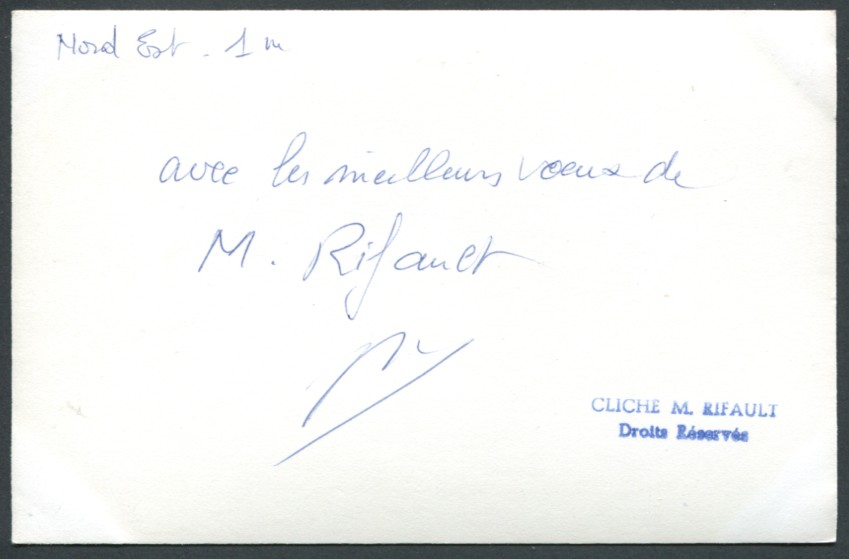 Nord Est - 1m
avec les meilleurs voeux de
M. Rifault
CLICHE M. RIFAULT
Droits Réservés